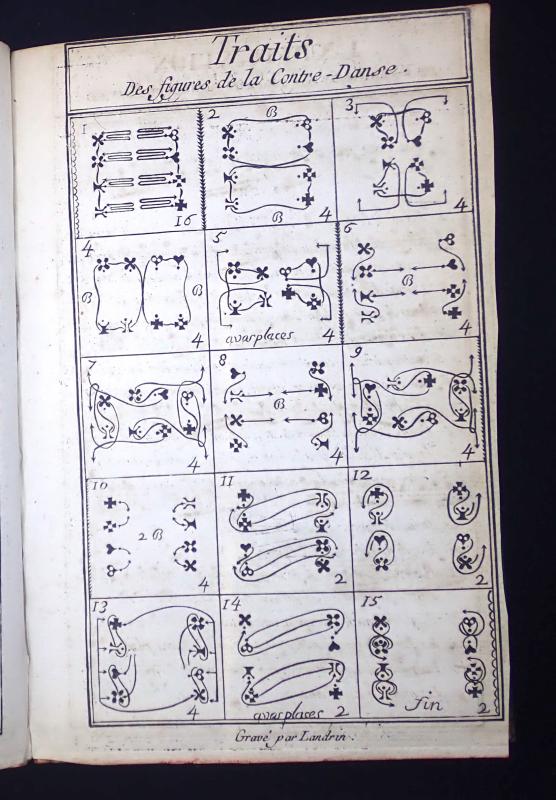 Traits
Des figures de la Contre-Danse.
1
16
2
B
B
4
3
4
4
B
B
4
5
avosplaces
4
6
B
4
7
4
8
B
4
9
4
10
2 B
4
11
2
12
2
13
4
14
avosplaces
2
15
fin
2
Gravé par Landrin.